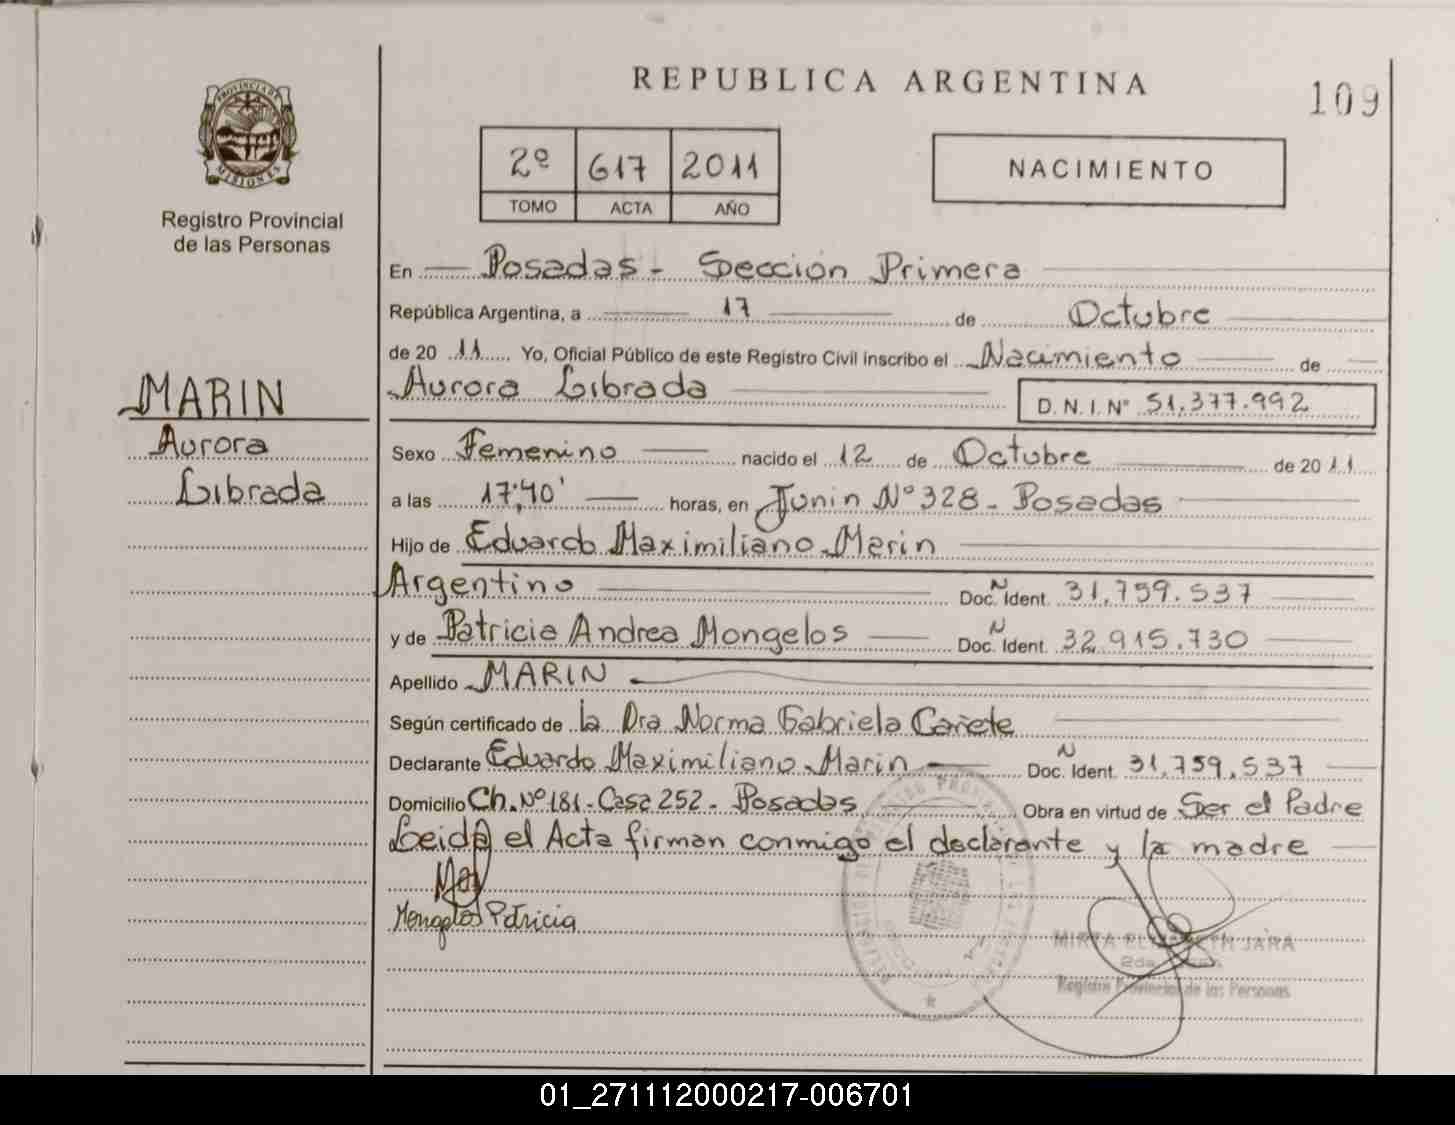 REPUBLICA ARGENTINA
109
PROVINCIA DE
MISIONES
Registro Provincial
de las Personas
2º 617 2011
TOMO ACTA AÑO
NACIMIENTO
En Posadas - Sección Primera
República Argentina, a 17 de Octubre
de 20 11 Yo, Oficial Público de este Registro Civil inscribo el Nacimiento de
Aurora Librada D.N.I. Nº 51.377.992
MARIN
Aurora
Librada
Sexo Femenino nacido el 12 de Octubre de 2011
a las 17:40' horas, en Junin Nº 328 - Posadas
Hijo de Eduardo Maximiliano Marin
Argentino Doc. Ident. N 31.759.537
y de Patricia Andrea Mongelos Doc. Ident. N 32.915.730
Apellido MARIN
Según certificado de la Dra Norma Gabriela Cañete
Declarante Eduardo Maximiliano Marin Doc. Ident. N 31.759.537
Domicilio Ch. Nº 181 - Casa 252 - Posadas Obra en virtud de Ser el Padre
Leida el Acta firman conmigo el declarante y la madre
Mongelos Patricia
MIRTA ELIZABETH JARA
Registro Provincial de las Personas
01_271112000217-006701